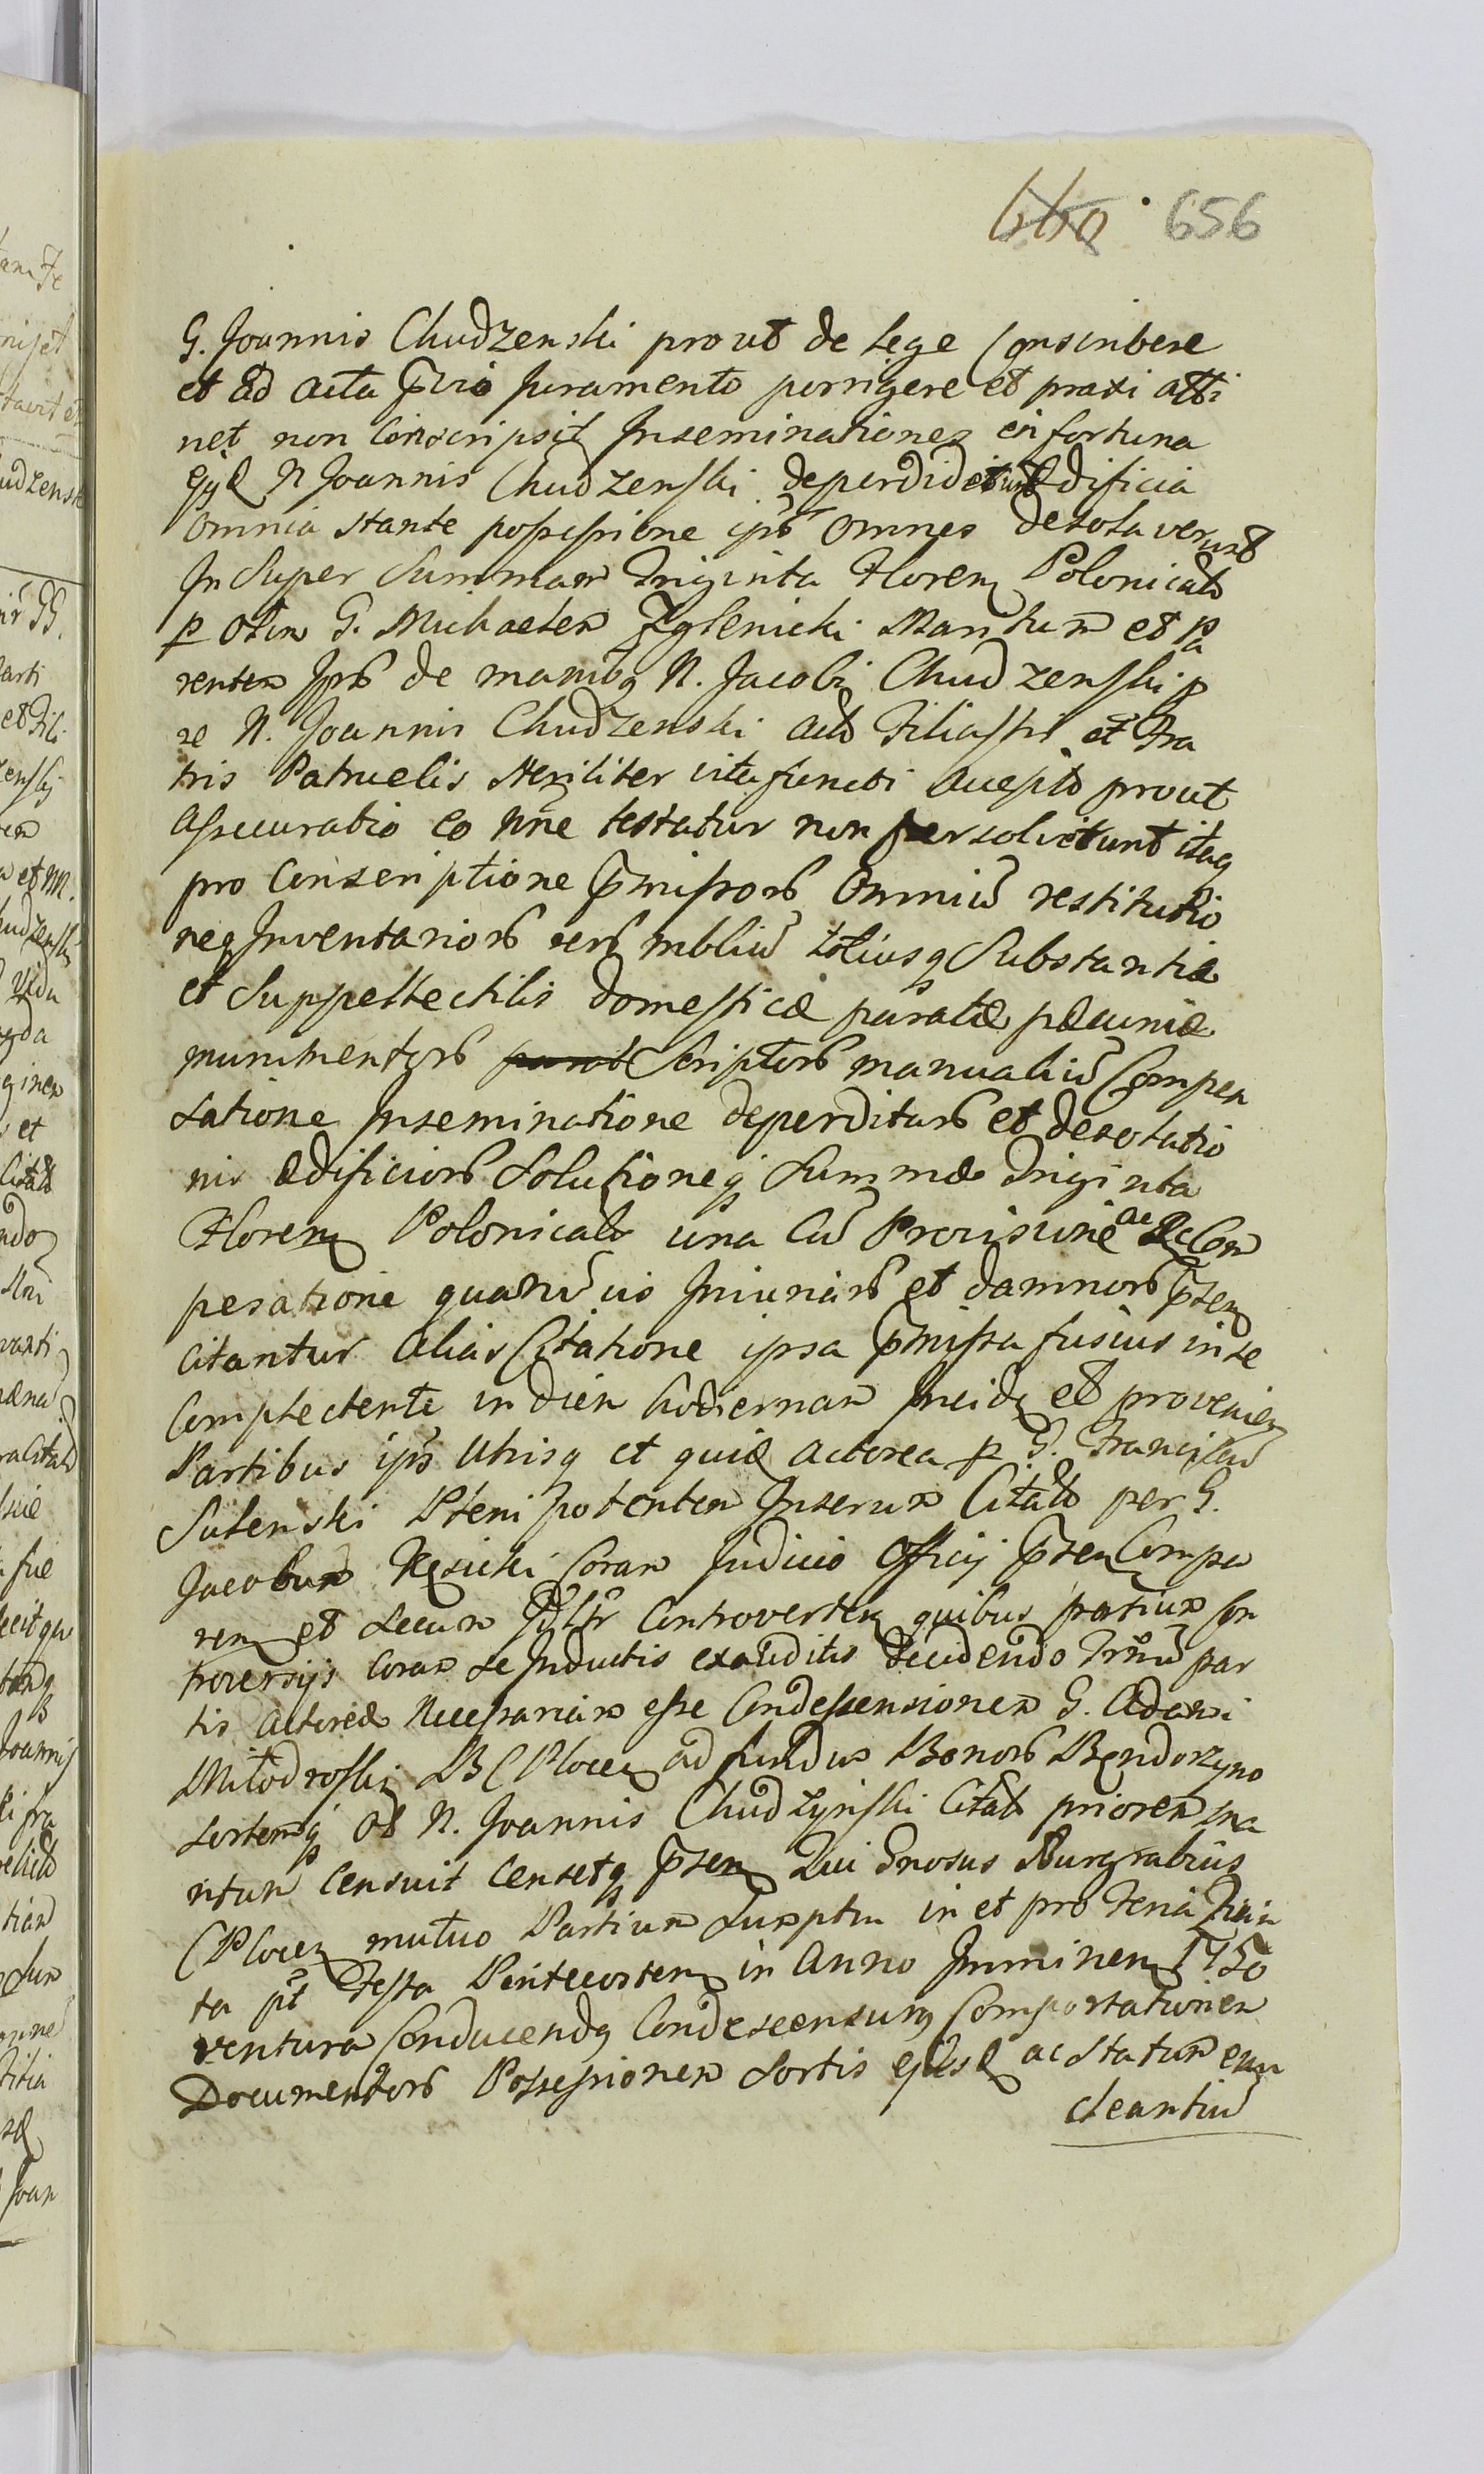 660 656
G. Joannis Chudzenski prout de lege Conscribere
et ad acta p̄vio Juramento porrigere et praxi atti
net non Conscripsit Inseminationes in fortuna
N Joannis Chudzenski deperdiderunt Ædificia
omnia stante possessione ipsor̄ omnes desolaverunt
In Super Summam Triginta Floren Polonical
p olim G. Michaelem Zglenicki Maritum et Pa
rentem Ipsor̄ de manibq N. Jacobi Chudzenski p
re N. Joannis Chudzenski act Filiastri et Fra
tris Patruelis steriliter vita functi accept prout
Assecuratio eo nne testatur non persolverunt itaq
pro Conscriptione p̄missor̄ Omniū restitutio
neq Inventarior̄ rer̄ mbliū totiusq Substantiæ
et Suppellectilis domesticæ paratæ pecuniæ
munimentor̄ parat Scriptor̄ manualiū Compen
satione Inseminatione deperditar̄ et desolatio
nis ædificior̄ Solutioneq Summæ Triginta
Floren Polonical una Cū Provisione ac ReCom
pensatione quarūvis Iniuriar̄ et damnor̄ p̄sen
citantur alias Citatione ipsa p̄missa fusius in se
Complectente in diem hodiernam Inciden et provenien
Partibus ipsis Utrisq et quidē actorea p G. Franciscū
Sulenski Plenipotentem Inserum Citat per G.
Jacobum Kęsicki Coram Judicio Officij p̄sen Compa
ren et secum Jdltr Controverten quibus partium Con
troversijs Coram se Inductis exauditis decidendo Trnū par
tis actoreæ Necessariam esse Condescensionem G. Adami
Młodroski B C Plocen ad fundum Bonor̄ Bendorzyno
sortemq Ol N. Joannis Chudzynski Citat priorem Ina
ntum Censuit Censetq p̄sen Qui Gnosus Burgrabius
C Plocen mutuo Partium Sumptu in et pro Feria Quin
ta pt Festa Pentecosten in Anno Imminen 1750
ventura Conducendq Condescensurq Comportationem
Documentor̄ Possessionem Sortis ejusd ac Statum enu
cleantiū